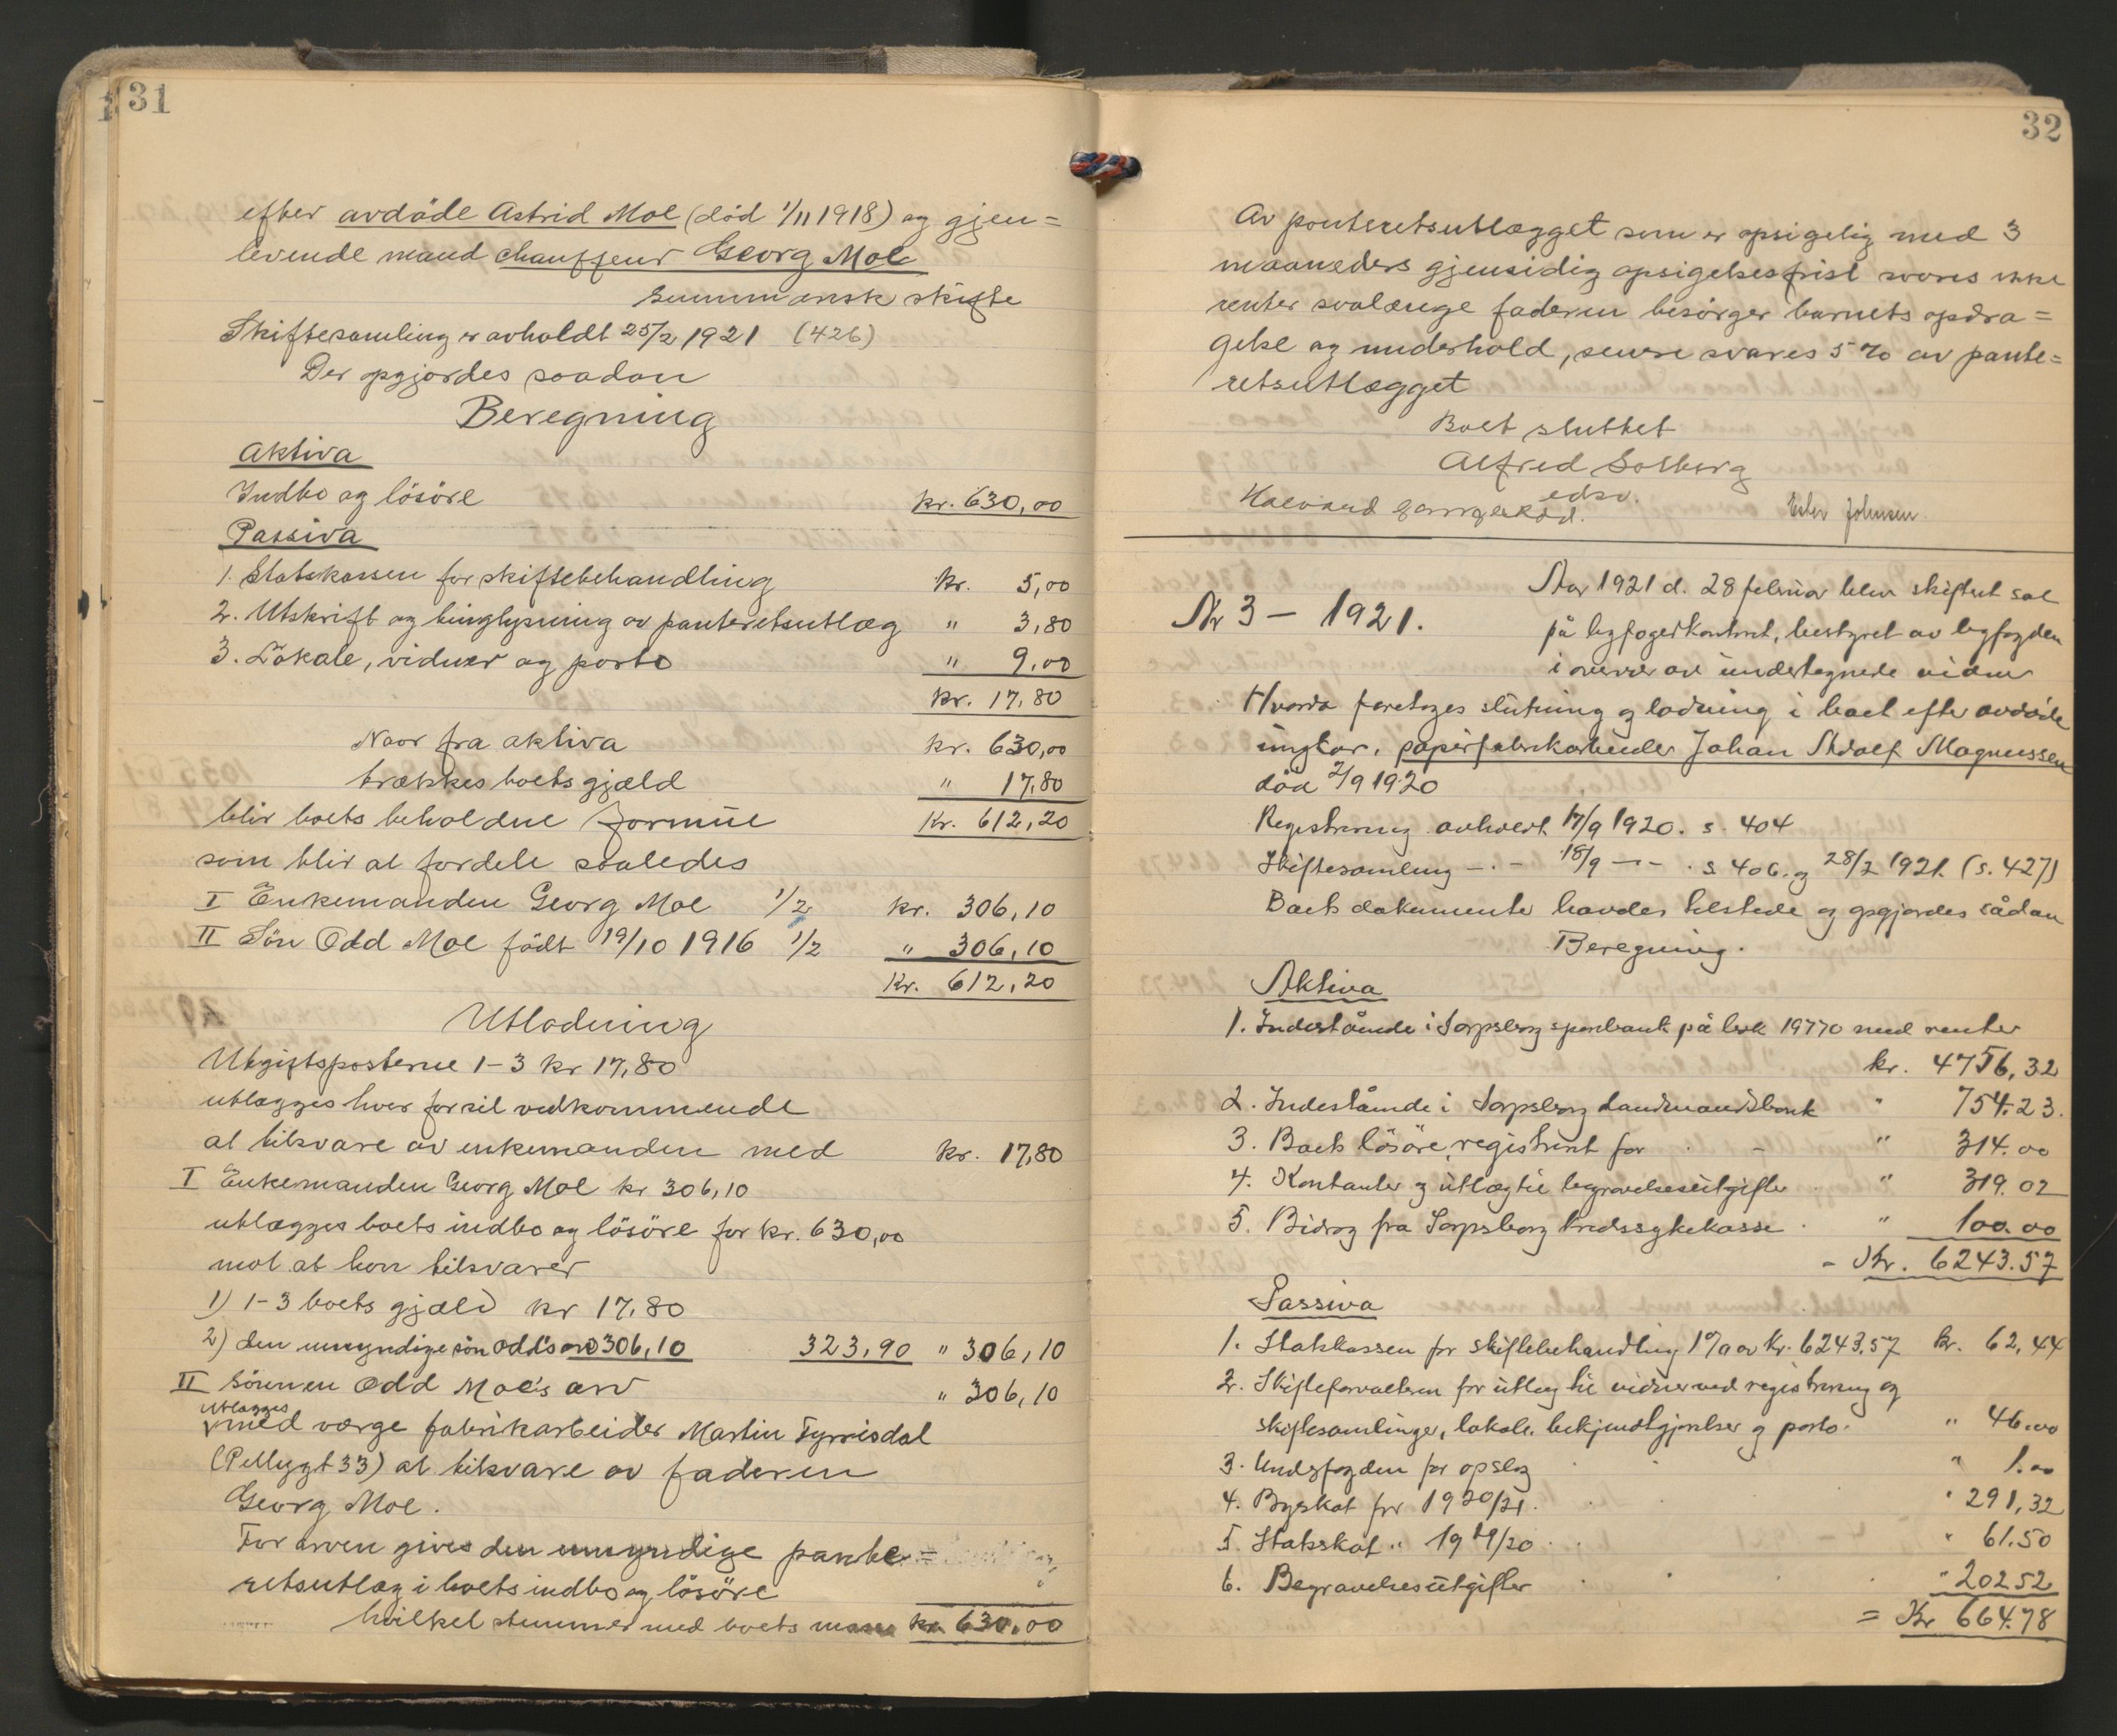 31
efter avdöde Astrid Moe (död 1/11 1918) og gjen=
levende mand chauffeur Georg Moe
Summarisk skifte
Skiftesamling er avholdt 25/2 1921 (426)
Der opgjordes saadan
Beregning
Aktiva
Indbo og lösöre kr. 630,00
Passiva
1. Statskassen for skiftebehandling kr. 5,00
2. Utskrift og tinglysning av panteretsutlæg " 3,80
3. Lokale, vidner og porto " 9,00
kr. 17,80
Naar fra aktiva kr. 630,00
trækkes boets gjæld " 17,80
blir boets beholdne formue Kr. 612,20
som blir at fordele saaledes
I Enkemanden Georg Moe 1/2 kr. 306,10
II Sön Odd Moe födt 19/10 1916 1/2 " 306,10
Kr. 612,20
Utlodning
Utgiftsposterne 1-3 kr 17,80
utlægges hver for sit vedkommende
at tilsvare av enkemanden med kr. 17,80
I Enkemanden Georg Moe kr 306,10
utlægges boets indbo og lösöre for kr. 630,00
mot at han tilsvarer
1) 1-3 boets gjæld kr 17,80
2) den umyndige sön Odd's arv 306,10 323,90 " 306,10
II Sönnen Odd Moe's arv " 306,10
utlægges
med værge fabrikarbeider Martin Tyrrisdal
(Pellygt 33) at tilsvare av faderen
Georg Moe.
For arven gives den umyndige pante=
retsutlæg i boets indbo og lösöre
hvilket stemmer med boets masse kr. 630,00
32
Av panteretsutlægget som er opsigelig med 3
maaneders gjensidig opsigelsesfrist svares ikke
renter saalænge faderen besörger barnets opdra=
gelse og underhold, senere svares 5 % av pante=
retsutlægget
Boet sluttet
Alfred Solberg
edsv.
Halvard Ester Johnsen.
Nr 3 – 1921.
Aar 1921 d. 28 februar blev skifteret sat
på byfogedkontoret, bestyret av byfogden
i overvær av undertegnede vidner
Hvorda foretoges slutning og lodning i boet efter avdöde
ungkar, papirfabrikarbeider Johan Adolf Magnussen
död 2/9 1920
Registrering avholdt 17/9 1920. s. 404
Skiftesamling –·– 18/9 –·– s. 406. og 28/2 1921. (s. 427)
Boets dokumenter havdes tilstede og opgjordes sådan
Beregning.
Aktiva
1. Indestående i Sarpsborg sparebank på bok 19770 med renter
kr. 4756,32
2. Indestående i Sarpsborg Landmandsbank " 754.23.
3. Boets lösöre, registrert for " 314.00
4. Kontanter og utlæg til begravelsesutgifter " 319.02
5. Bidrag fra Sarpsborg kredssykekasse " 100.00
- Kr. 6243.57
Passiva
1. Statskassen for skiftebehandling 1% av kr. 6243,57 kr. 62,44
2. Skifteforvalteren for utlæg til vidner ved registrering og
skiftesamlinger, lokale, bekjendtgjörelser og porto. " 46.00
3. Underfogden for opslag " 1.00
4. Byskat for 1920/21. " 291,32
5. Statsskat " 1919/20 " 61.50
6. Begravelsesutgifter " 202 52
= Kr 664.78